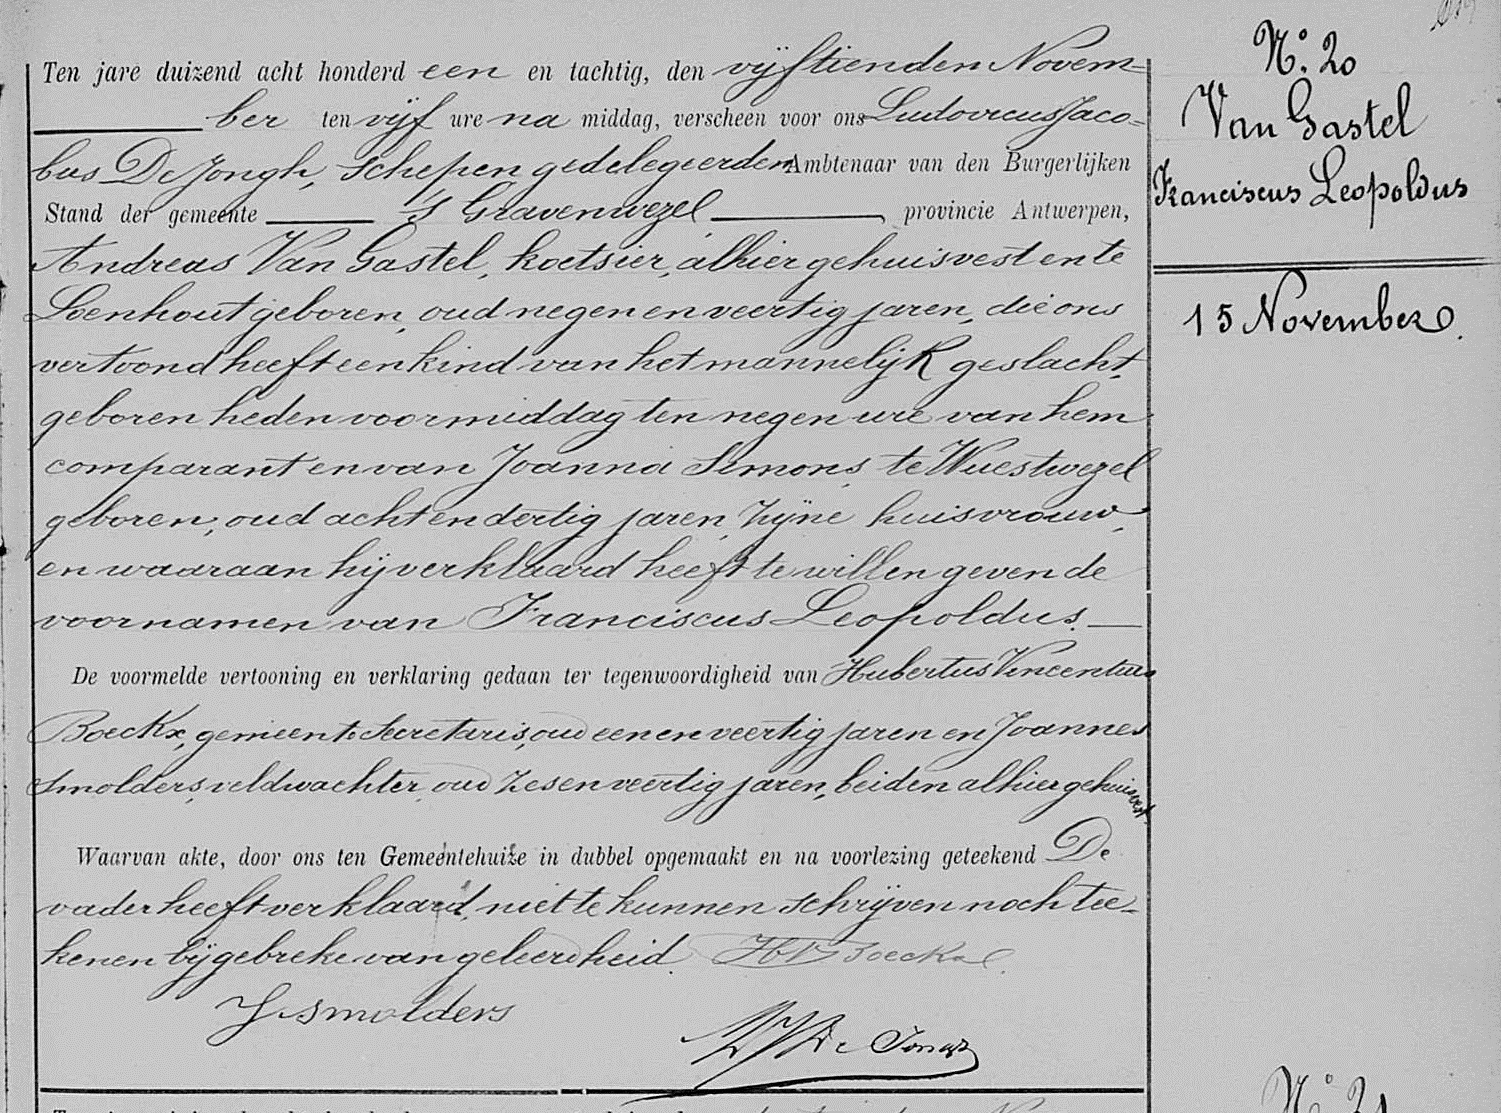 Ten jare duizend acht honderd een en tachtig, den vijftienden Novem-
ber ten vijf ure na middag, verscheen voor ons Ludovicus Jaco-
bus De Jongh, Schepen gedelegeerden Ambtenaar van den Burgerlijken
Stand der gemeente 's Gravenwezel, provincie Antwerpen,
Andreas Van Gastel, koetsier, alhier gehuisvest en te
Loenhout geboren, oud negen en veertig jaren, die ons
vertoond heeft een kind van het mannelijk geslacht,
geboren heden voormiddag ten negen ure van hem
comparant en van Joanna Simons, te Wuestwezel
geboren, oud acht en dertig jaren, zijne huisvrouw,
en waaraan hij verklaard heeft te willen geven de
voornamen van Franciscus Leopoldus.
De voormelde vertooning en verklaring gedaan ter tegenwoordigheid van Hubertus Vincentius
Boeckx, gemeente Secretaris, oud een en veertig jaren en Joannes
Smolders, veldwachter, oud zes en veertig jaren, beiden alhier gehuisvest.
Waarvan akte, door ons ten Gemeentehuize in dubbel opgemaakt en na voorlezing geteekend De
vader heeft verklaard, niet te kunnen schrijven noch tee-
kenen bij gebreke van geleerdheid. HV Boeckx.
J Smolders
LJ De Jongh
N.º 20
Van Gastel
Franciscus Leopoldus
15 November.
N.º 21